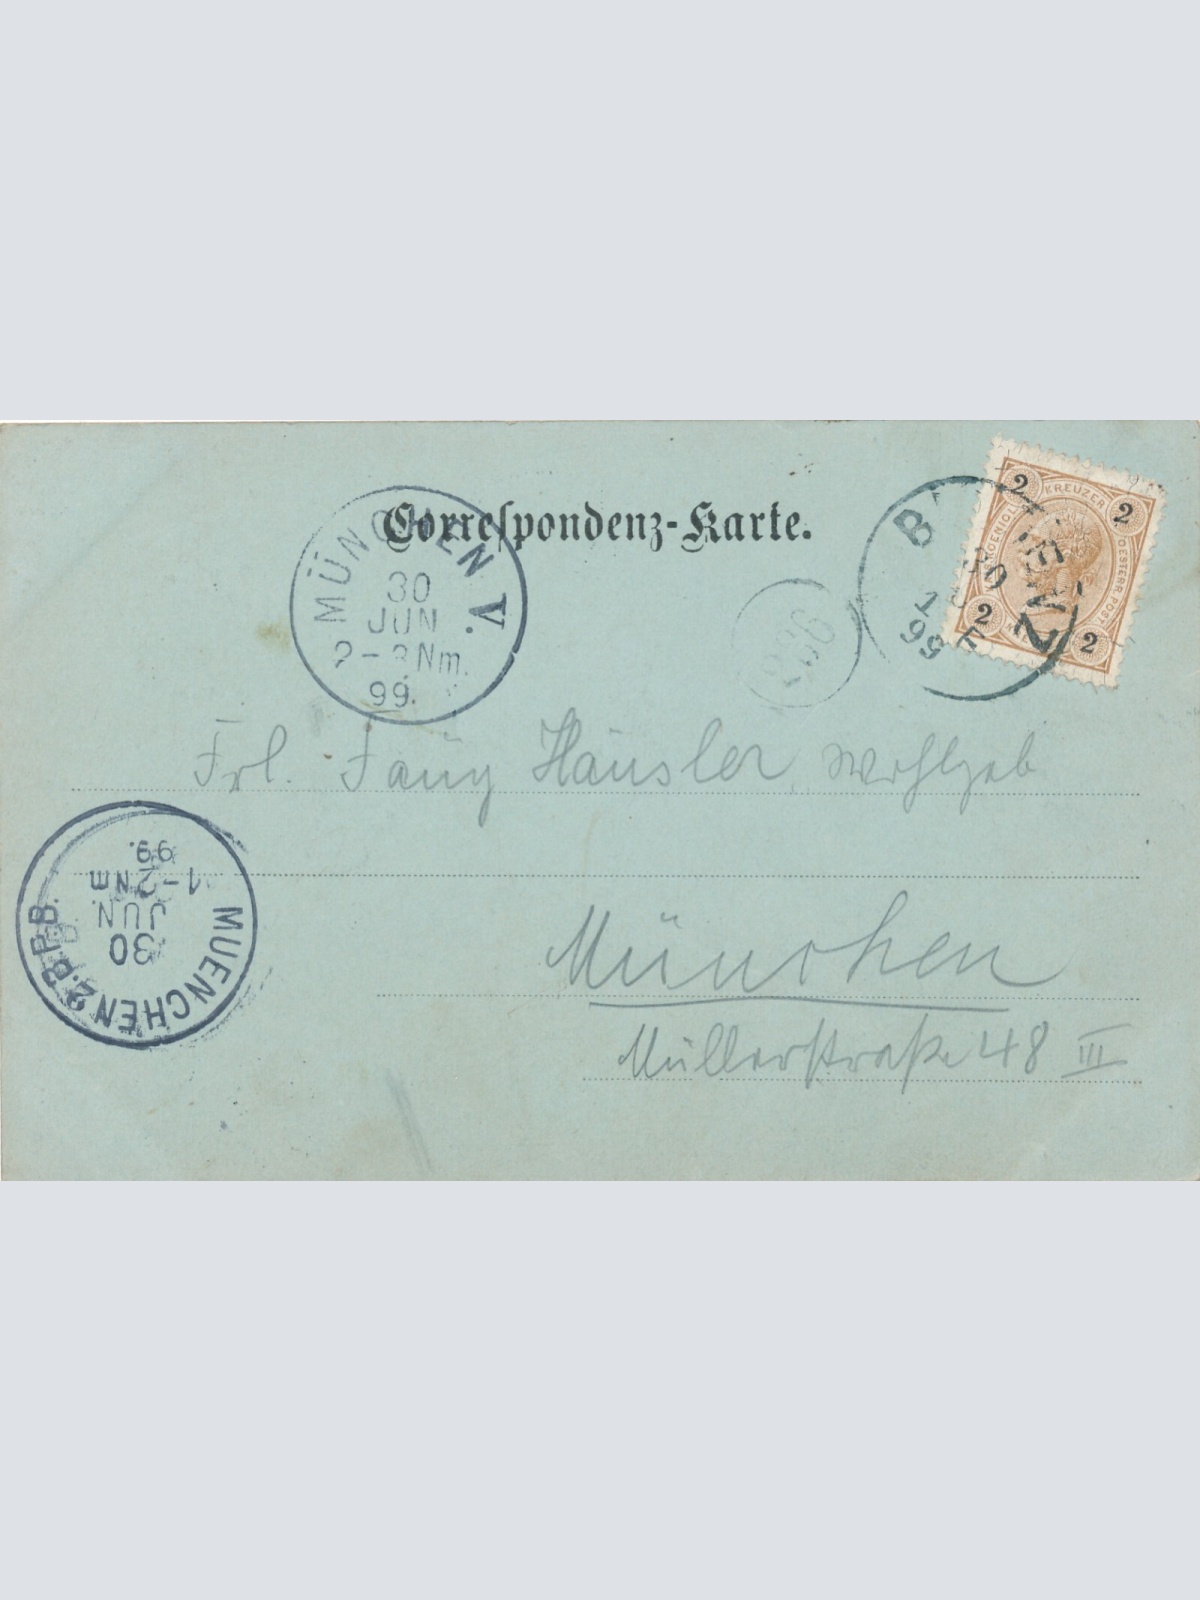 Correspondenz-Karte.
MÜNCHEN V.
30
JUN
2-3Nm.
99.
2 KREUZER 2
OESTERR. POST
2 2
30
99
Frl. Fany Häusler, Wohlgeb
MUENCHEN 2.B.P.B.
30
JUN.
1-2NM
99.
München
Müllerstraße 48 III